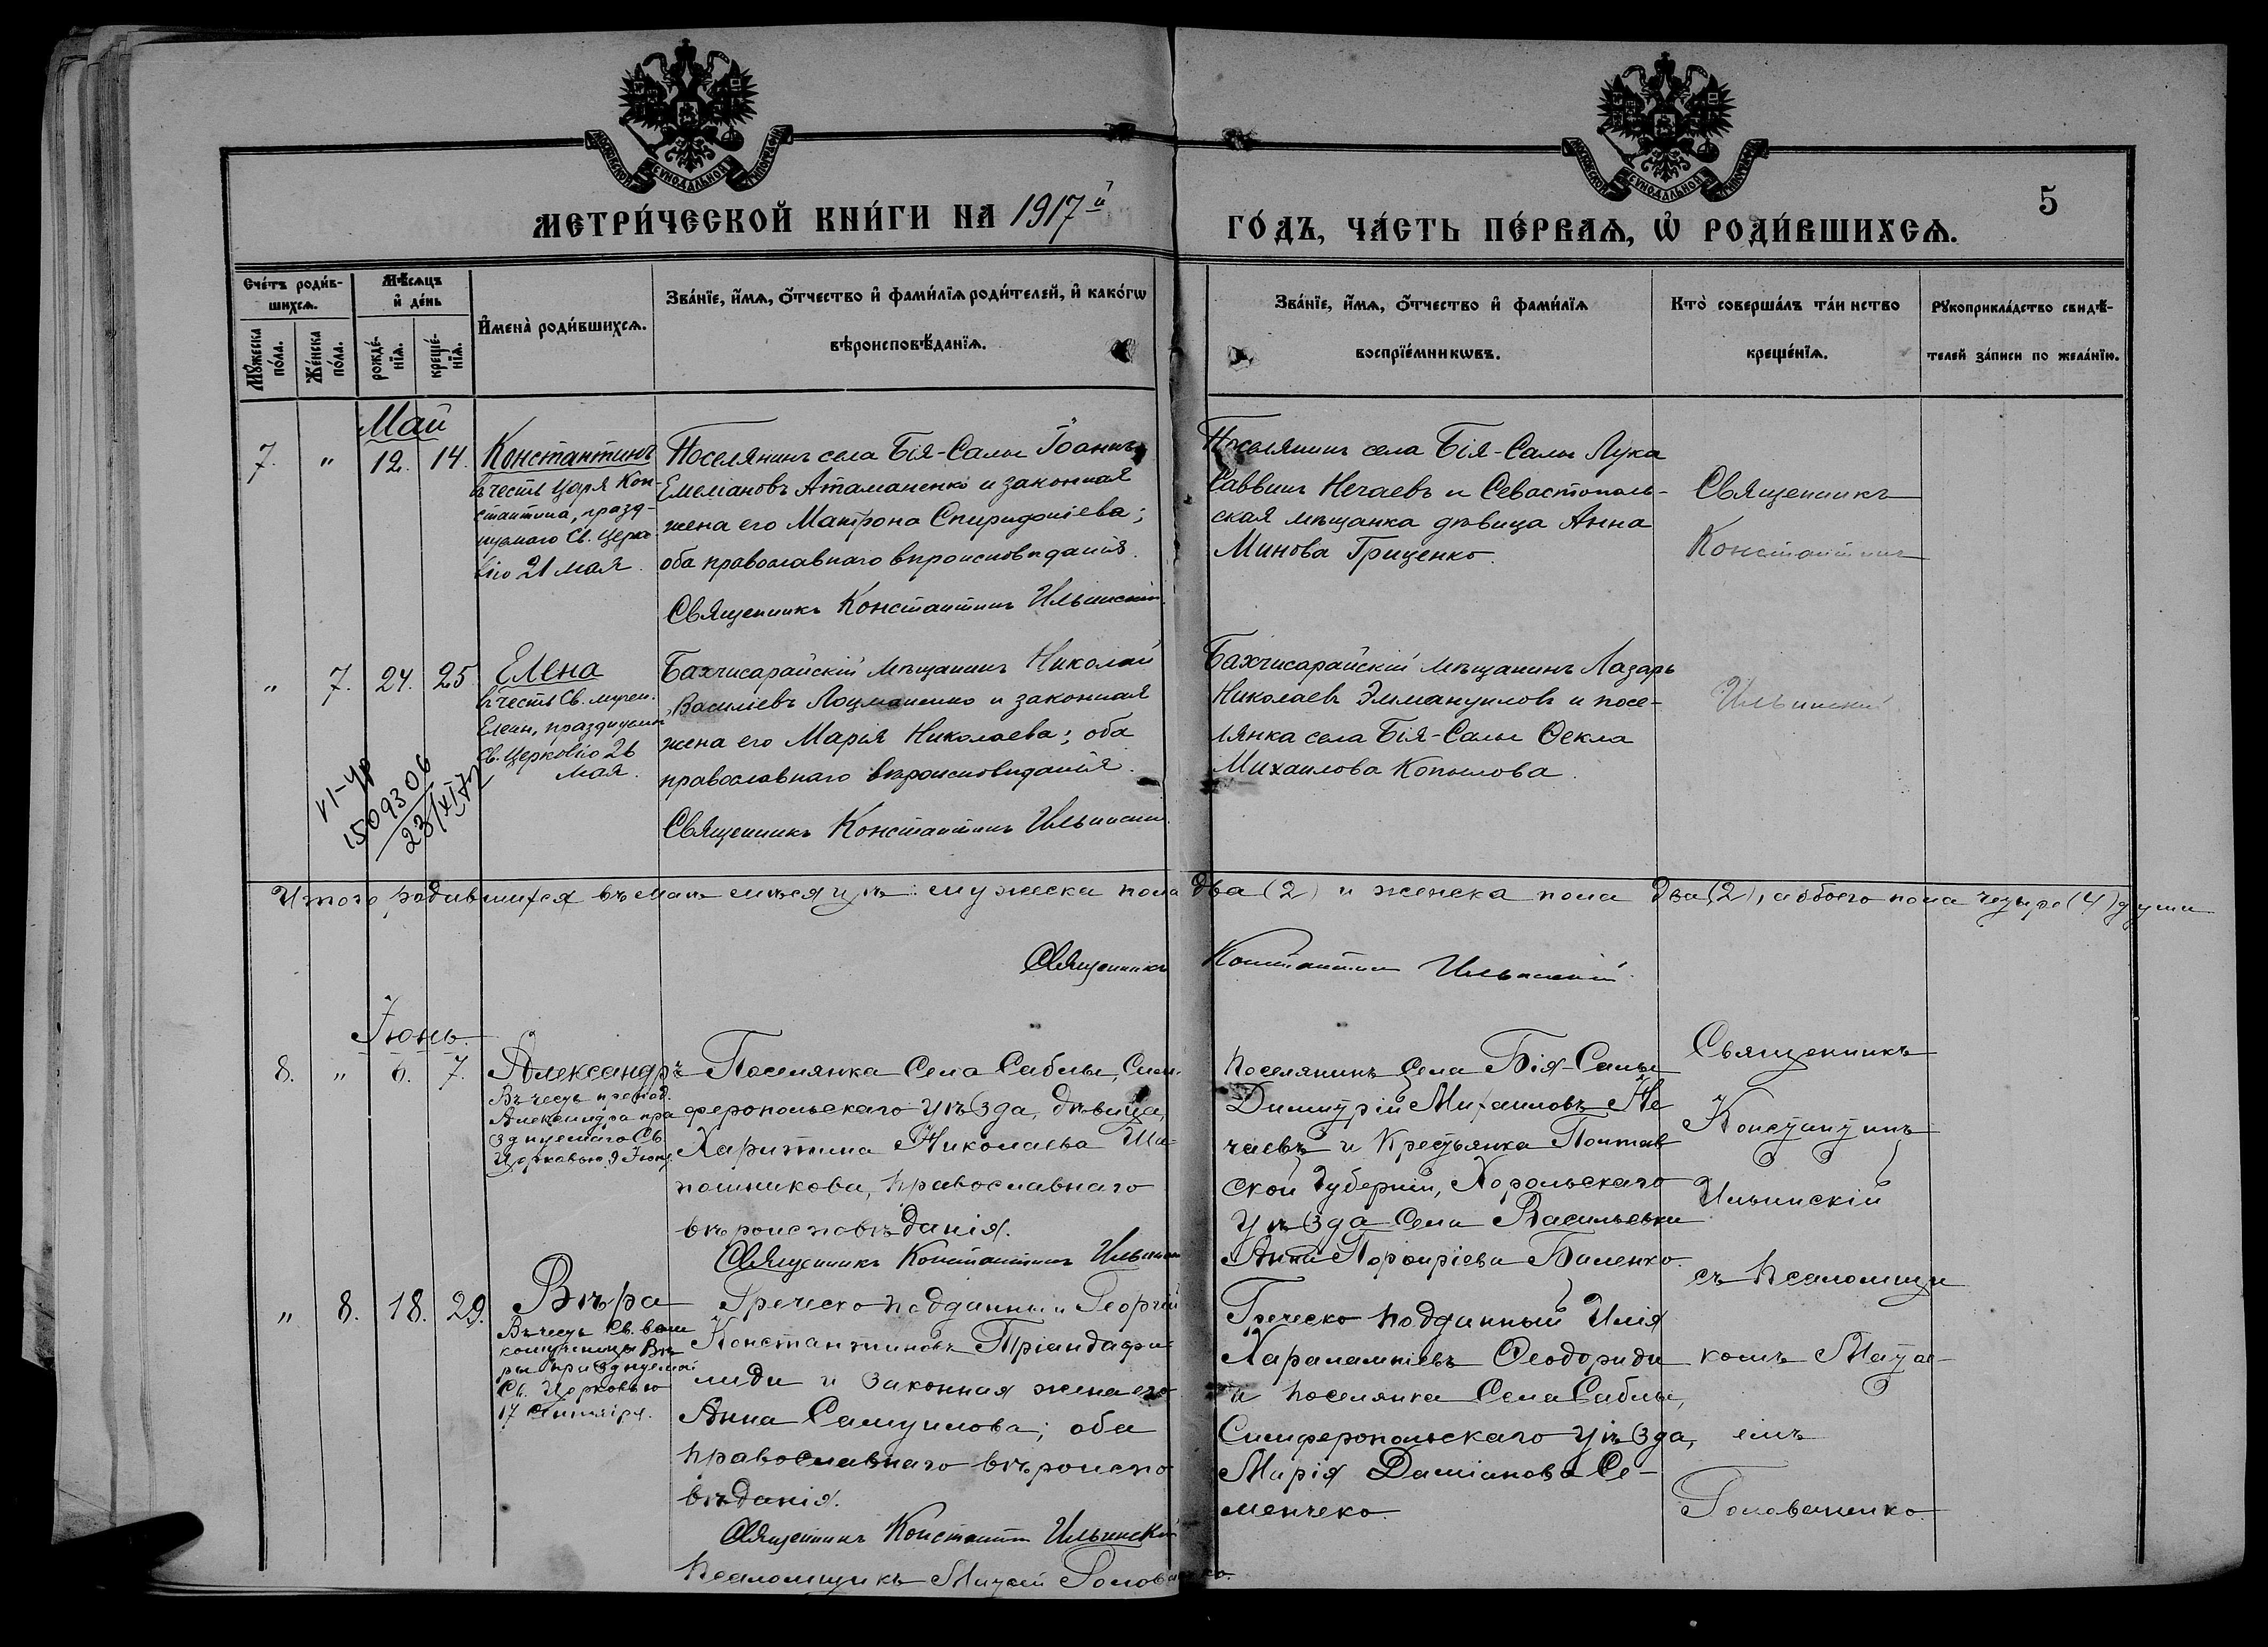 МОСКОВСКОЙ СѴНОДАЛЬНОЙ ТИПОГРАФІИ
МОСКОВСКОЙ СѴНОДАЛЬНОЙ ТИПОГРАФІИ
5
МЕТРИ́ЧЕСКОЙ КНИ́ГИ НА 1917й
ГО́ДЪ, ЧА́СТЬ ПЕ́РВАѦ, Ѡ҆ РОДИ́ВШИХСѦ.
Сче́тъ роди́в-
шихсѧ.
Мꙋ́жеска по́ла.
Же́нска по́ла.
Мѣ́сѧцъ
и҆ де́нь
рожде́-нїѧ.
креще́-нїѧ.
И҆мена̀ роди́вшихсѧ.
Зва́нїе, и҆́мѧ, ѻ҆́тчество и҆ фами́лїѧ роди́телей, и҆ како́гѡ
вѣроисповѣ́данїѧ.
Зва́нїе, и҆́мѧ, ѻ҆́тчество и҆ фами́лїѧ
воспрїе́мникѡвъ.
Кто̀ соверша́лъ та́инство
креще́нїѧ.
Рꙋкоприкла́дство свидѣ́-
телей за́писи по жела́нїю.
Май
7. " 12. 14. Константинъ
въ честь Царя Кон-
стантина, празд-
нуемаго Св. Церко-
вію 21 мая.
Поселянинъ села Бія-Салы Іоаннъ
Емеліановъ Атаманенко и законная
жена его Матрона Спиридоніева;
оба православнаго вѣроисповѣданія.
Священникъ Константинъ Ильинскій.
Поселянинъ села Бія-Салы Лука
Саввинъ Нечаевъ и Севастополь-
ская мѣщанка дѣвица Анна
Минова Гриценко.
Священникъ
Константинъ
Ильинскій
" 7. 24. 25. Елена
въ честь Св. мучен.
Елены, празднуемой
Св. Церковію 26
мая.
Бахчисарайскій мѣщанинъ Николай
Василіевъ Лоцманенко и законная
жена его Марія Николаева; оба
православнаго вѣроисповѣданія.
Священникъ Константинъ Ильинскій
Бахчисарайскій мѣщанинъ Лазарь
Николаевъ Эммануиловъ и посе-
лянка села Бія-Салы Ѳекла
Михаилова Копылова.
1509306
23/XI 72
Итого родившихся въ маѣ мѣсяцѣ: мужеска пола два (2) и женска пола два (2), а обоего пола четыре (4) души
Священникъ Константинъ Ильинскій.
Іюнь.
8. " 6. 7. Александръ
Въ честь препод.
Александра пра
зднуемаго Св.
Церковью 9 Іюня.
Поселянка Села Саблы, Сим-
феропольскаго уѣзда, дѣвица,
Харитина Николаева Ша-
пошникова, православнаго
вѣроисповѣданія.
Священникъ Константинъ Ильинскій
Поселянинъ Села Бія-Салы
Димитрій Михаиловъ Не
чаевъ и Крестьянка Полтав
ской Губерніи, Хорольскаго
уѣзда Села Васильевки
Анна Порфиріева Биленко.
Священникъ
Константинъ
Ильинскій
съ псаломщи
комъ Матѳе-
емъ
Голованенко.
" 8. 18. 29. Вѣра
Въ честь Св. вели
комученицы Вѣ
ры празднуемой
Св. Церковью
17 Сентября.
Греческо подданный Георгій
Константиновъ Тріандафи-
лиди и законная жена его
Анна Самуилова; оба
православнаго вѣроиспо
вѣданія.
Священникъ Константинъ Ильинскій
Псаломщикъ Матѳей Голованенко.
Греческо подданный Илія
Харалампіевъ Ѳеодориди
и поселянка Села Саблы,
Симферопольскаго уѣзда,
Марія Даміанова Се-
менчеко.